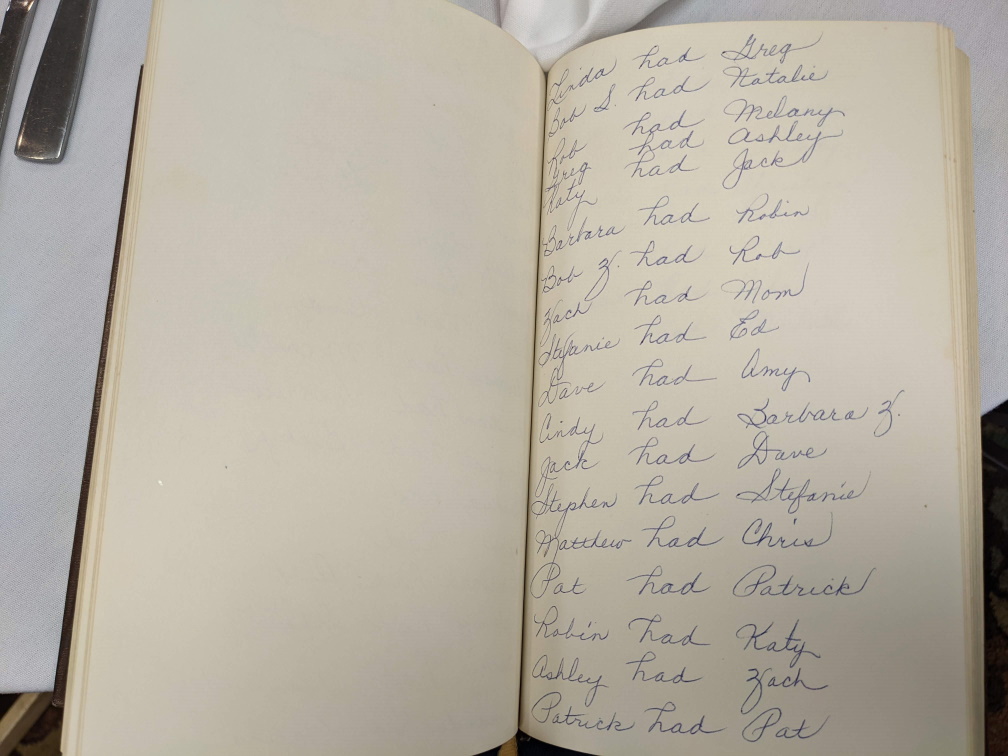 Linda had Greg
Bob S. had Natalie
Rob had Melany
Greg had Ashley
Katy had Jack
Barbara had Robin
Bob Z. had Rob
Zach had Mom
Stefanie had Ed
Dave had Amy
Cindy had Barbara Z.
Jack had Dave
Stephen had Stefanie
Matthew had Chris
Pat had Patrick
Robin had Katy
Ashley had Zach
Patrick had Pat